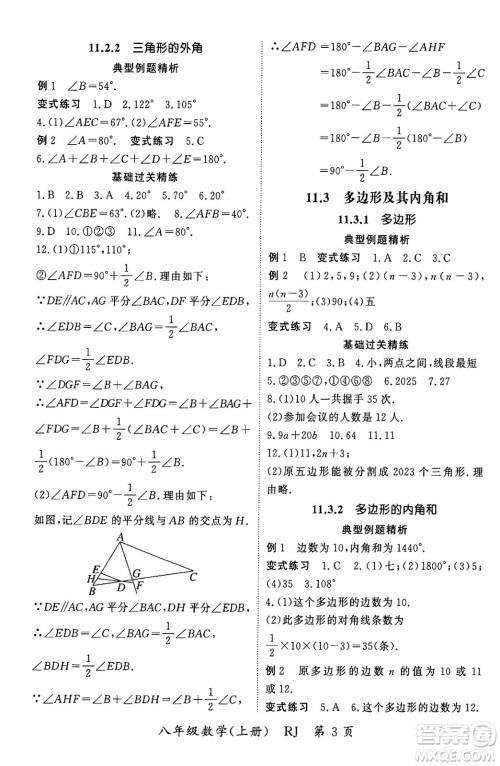 11.2.2 三角形的外角
典型例题精析
例1 ∠B=54°.
变式练习 1.D 2.122° 3.105°
4.(1)∠AEC=67°.(2)∠AFD=67°.
例2 ∠A=80°. 变式练习 5.C
6.∠A+∠B+∠C+∠D+∠E=180°.
基础过关精练
1.B 2.D 3.C 4.D 5.B 6.15° 7.70°
8.(1)∠CBE=63°.(2)略. 9.①②③
10.D 11.①③④
12.(1)①115°,110°
②∠AFD=90°+1/2∠B.理由如下:
∵DE∥AC,AG平分∠BAC,DF平分∠EDB,
∴∠EDB=∠C,∠BAG=1/2∠BAC,
∠FDG=1/2∠EDB.
∵∠DGF=∠B+∠BAG,
∴∠AFD=∠DGF+∠FDG
=∠B+∠BAG+∠FDG
=∠B+1/2(∠BAC+∠C)=∠B+
1/2(180°-∠B)=90°+1/2∠B.
(2)∠AFD=90°-1/2∠B.理由如下:
如图,∠BDE的平分线与AG的交点为H.
A
E
H
B D F C
∵AG平分∠BAC,DH平分∠EDB,
∴∠BAG=1/2∠BAC,
∠BDH=1/2∠EDB.
∵DE∥AC,∴∠EDB=∠C.
∴∠BDH=1/2∠C.
∵∠AHF=∠B+∠BDH,
∴∠AFD=180°-∠BAG-∠AHF
=180°-1/2∠BAC-∠B-∠BDH
=180°-1/2∠BAC-∠B-1/2∠C
=180°-∠B-1/2(∠BAC+∠C)
=180°-∠B-1/2(180°-∠B)
=180°-∠B-90°+1/2∠B
=90°-1/2∠B.
11.3 多边形及其内角和
11.3.1 多边形
典型例题精析
例1 B 变式练习 1.A 2.C 3.C
例2 (1)2,5,9;(2)(n-3),
n(n-3)/2;(3)90;(4)五
变式练习 4.A 5.D
基础过关精练
1.D 2.B 3.A 4.小,两点之间,线段最短
5.②③⑤⑦,①④⑥⑧ 6.2025 7.27
8.(1)10人一共握手35次.
(2)参加会议的人数是12.
9.9a+20b 10.64 11.14
12.(1)4,6,8,2n+3
(2)原五边形能被分割成2023个三角形.理由略.
11.3.2 多边形的内角和
典型例题精析
例1 边数为10,内角和为1440°.
变式练习 1.C 2.(1)七;(2)1800°;(3)5;
(4)35 3.108°
4.(1)这个多边形的边数为10.
(2)此多边形的对角线条数为
1/2×10×(10-3)=35(条).
例2 原多边形的边数n的值为10或11或12.
变式练习 5.D 6.这个多边形的边数是12.
八年级数学(上册) RJ 第3页